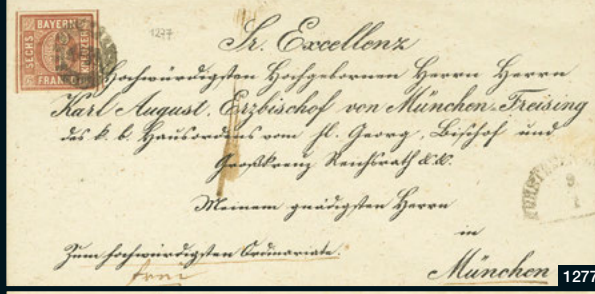 BAYERN
SECHS
KREUZER
FRANCO
1277
Sr. Excellenz
Hochwürdigsten Hochgebornen Herrn Herrn
Karl August, Erzbischof von München-Freising
des k. b. Hausordens vom hl. Georg, Bischof und
Großkreuz Reichsrath &. &.
Meinem gnädigsten Herrn
in
Zum hochwürdigsten Ordinariate.
frei
München
1277